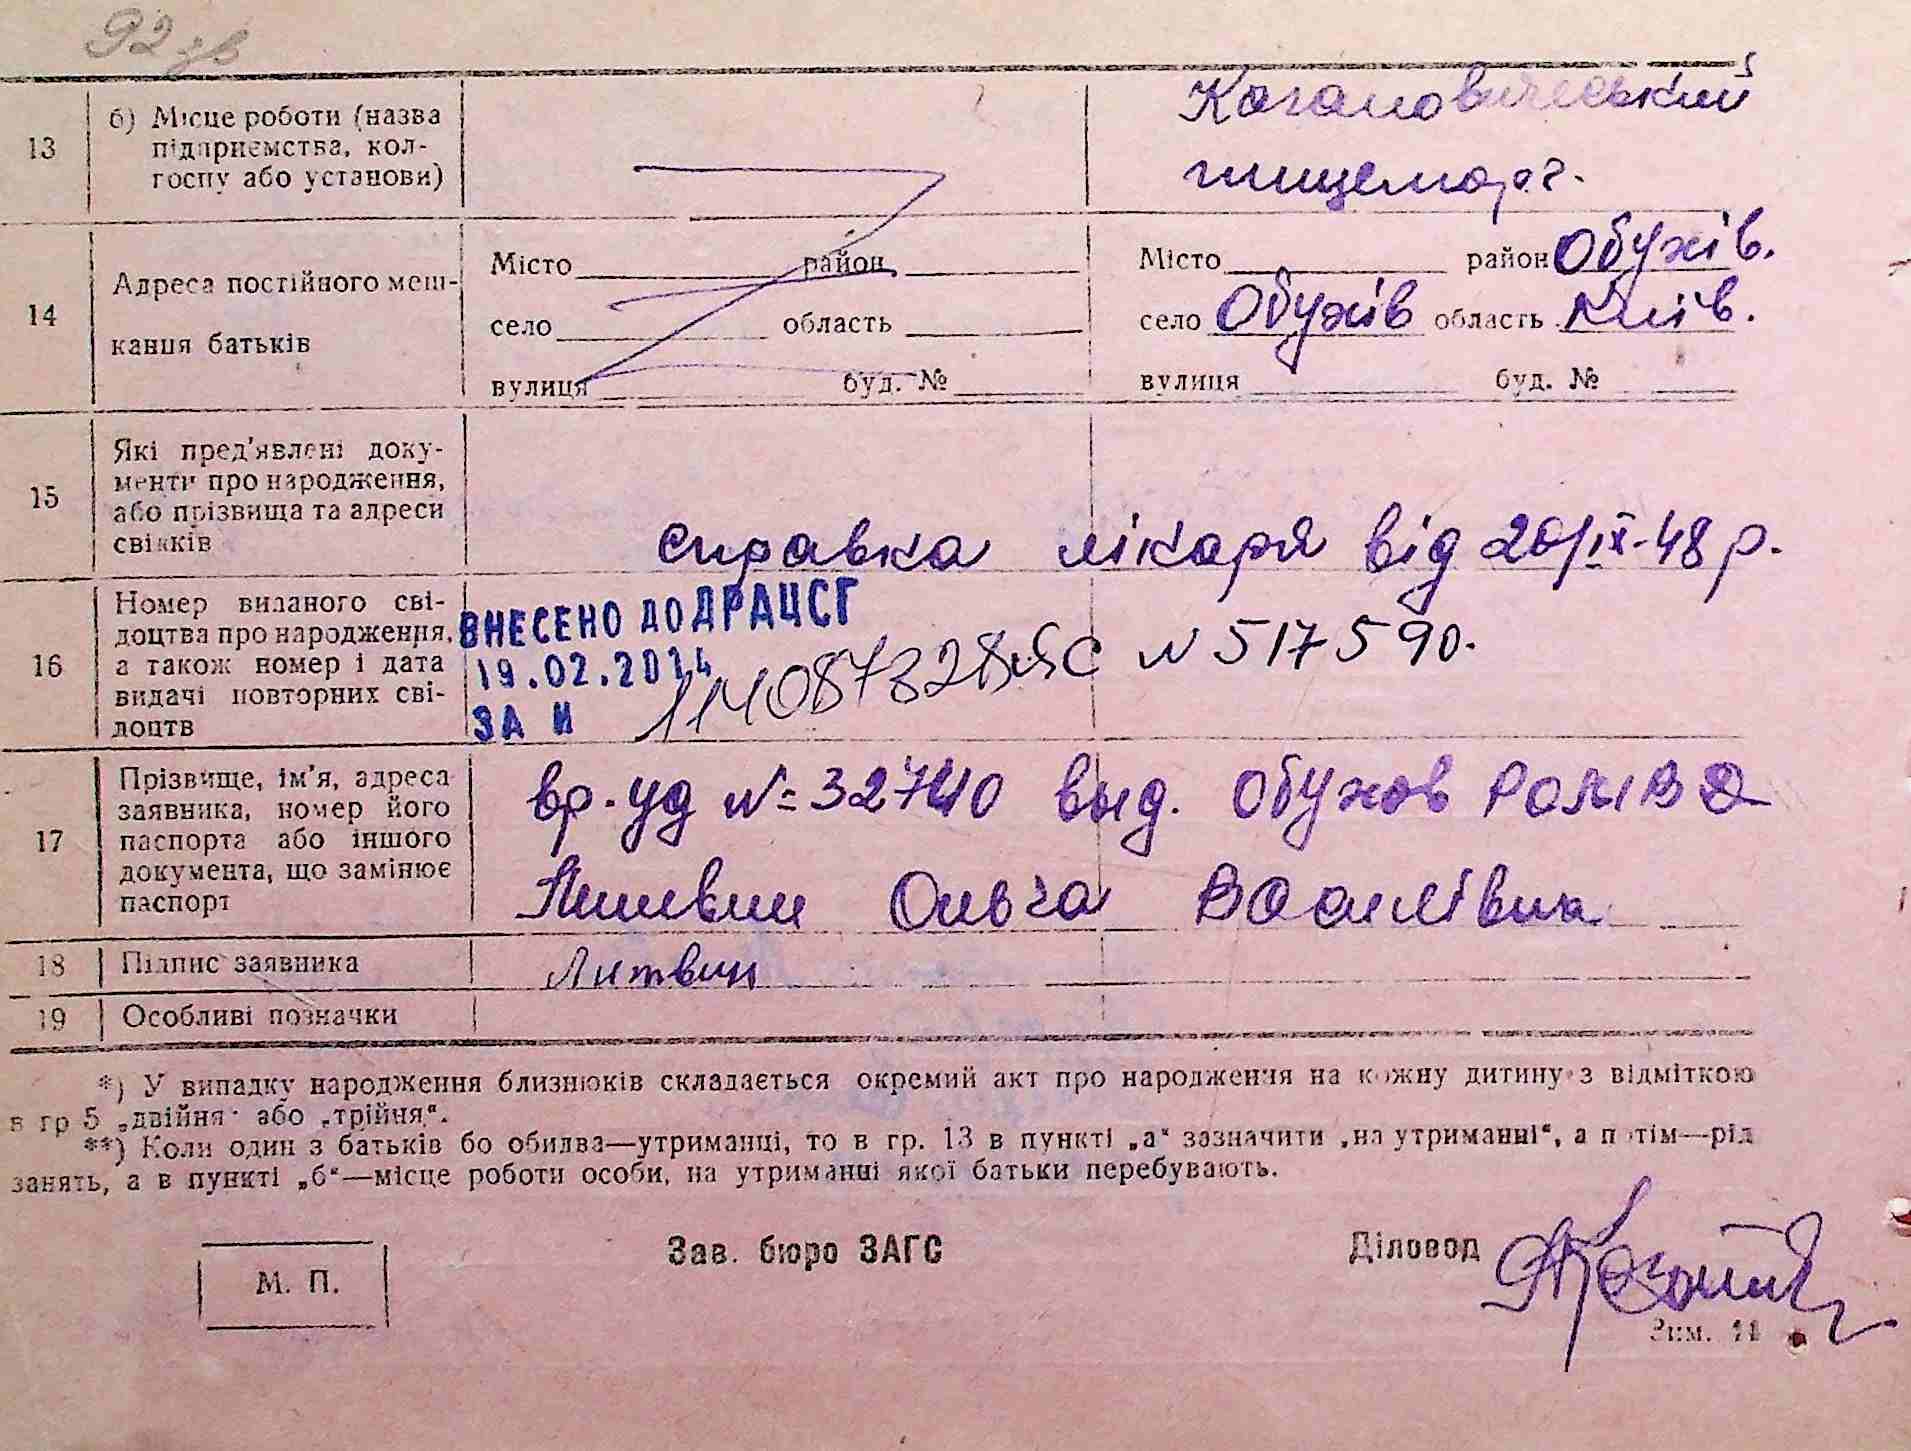 92 зв
13
б) Місце роботи (назва
підприємства, кол-
госпу або установи)
Кагановичеський
пищеторг.
14
Адреса постійного меш-
кання батьків
Місто район
село область
вулиця буд. №
Місто район Обухів.
село Обухів область Київ.
вулиця буд. №
15
Які пред'явлені доку-
менти про народження,
або прізвища та адреси
свідків
справка лікаря від 20/ІХ-48 р.
16
Номер виданого сві-
доцтва про народження,
а також номер і дата
видачі повторних сві-
доцтв
ВНЕСЕНО ДО ДРАЦСГ
19.02.2014
ЗА N
N 517590.
17
Прізвище, ім'я, адреса
заявника, номер його
паспорта або іншого
документа, що замінює
паспорт
вр. уд №=32740 выд. Обухов РОМВД
Литвин Ольга Василівна
18
Підпис заявника
Литвин
19
Особливі позначки
*) У випадку народження близнюків складається окремий акт про народження на кожну дитину з відміткою
в гр 5 „двійня" або „трійня".
**) Коли один з батьків бо обидва—утриманці, то в гр. 13 в пункті „а" зазначити „на утриманні", а потім—рід
занять, а в пункті „б"—місце роботи особи, на утриманні якої батьки перебувають.
М. П.
Зав. бюро ЗАГС
Діловод
Зим. 11